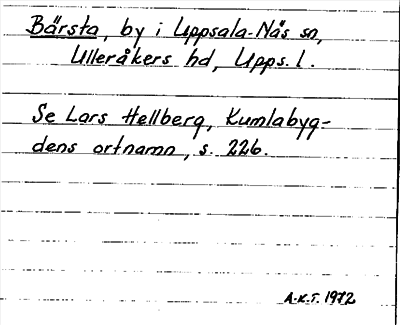 Bärsta, by i Uppsala-Näs sn,
Ulleråkers hd, Upps. l.
Se Lars Hellberg, Kumlabyg-
dens ortnamn, s. 226.
A.K.T. 1972